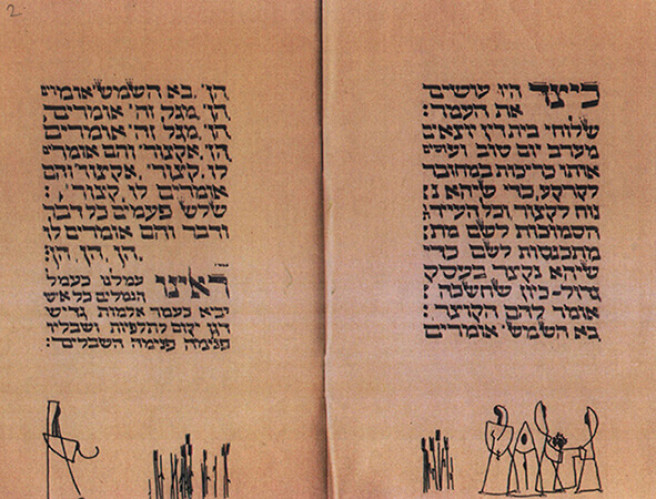 2
כיצד היו עושים
את העמר:
שלוחי בית דין יוצאים
מערב יום טוב ועושים
אותו כריכות במחובר
לקרקע, כדי שיהא נ:
נוח לקצור, וכל העירות
הסמוכות לשם מת:
מתכנסות לשם כדי
שיהא נקצר בעסק
גדול-כיון שחשכה:
אומר להם הקוצר:
בא השמש' אומרים
הן', בא השמש' אומרים
הן', מגל זה' אומרים,
הן', מגל זה' אומרים
הן', אקצור' והם אומרים
לו, קצור', אקצור' והם
אומרים לו, קצור',:
שלש פעמים כל דבר
ודבר והם אומרים לו
הן, הן, הן:
ראינו עמלנו כעמל
הנמלים כל איש
יביא כעמר אלמות גדישי
דגן יקום לתלפיות ושבליו
פנימה פנימה השבלים: